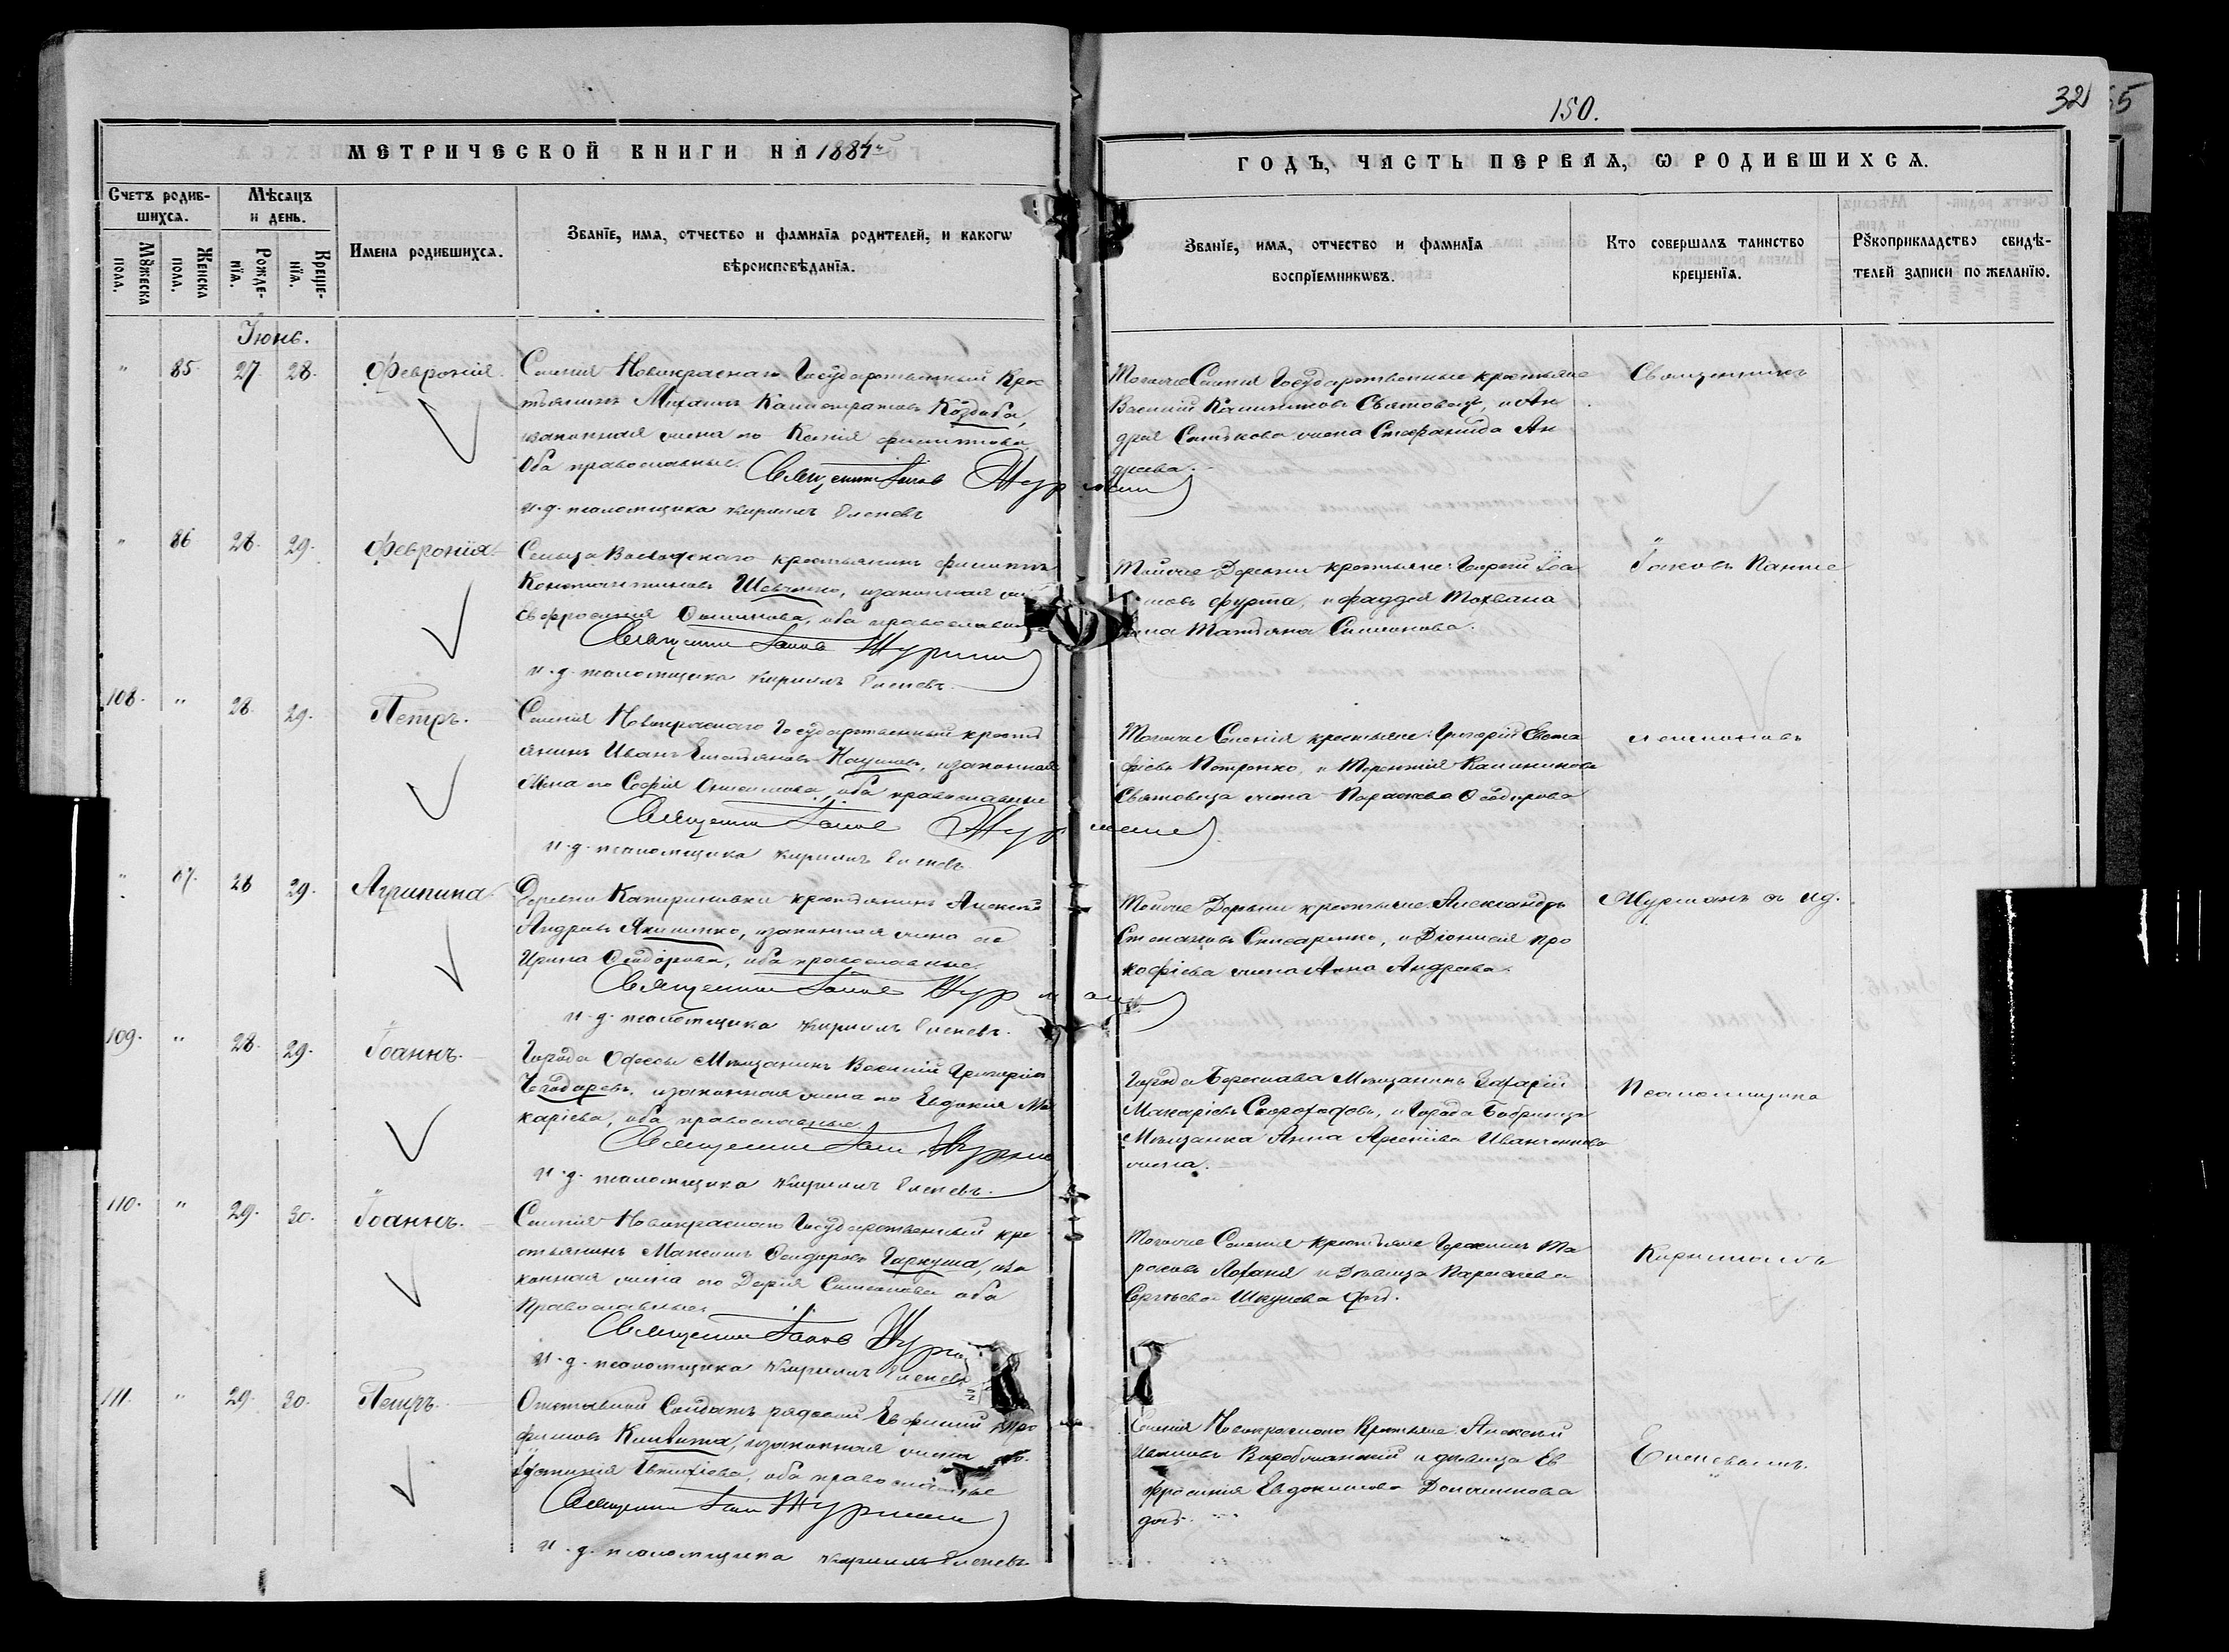 150.
32
55
МЕТРИЧЕСКОЙ КНИГИ НА 1884й
ГОДЪ, ЧАСТЬ ПЕРВАЯ, Ѡ РОДИВШИХСѦ.
Счетъ родив-
шихсѧ.
Мѣсѧцъ
и день.
Имена родившихсѧ.
Званїе, имѧ, отчество и фамилїа родителей, и какогѡ
вѣроисповѣданїѧ.
Мꙋжеска
пола.
Женска
пола.
Рожде-
нїѧ.
Креще-
нїѧ.
Званїе, имѧ, отчество и фамилїа
воспрїемникѡвъ.
Кто совершалъ таинство
крещенїѧ.
Рꙋкоприкладство свидѣ-
телей записи по желанїю.
Іюнь.
" 85. 27. 28. Февронія.
Селенія Новокраснаго Государственный Крес
тьянинъ Михаилъ Калистратовъ Коздоба,
и законная жена его Ксенія Филиппова
Оба православные. Священникъ Іаковъ Журманъ
и. д. псаломщика Кириллъ Еленевъ
Тогоже Селенія Государственные крестьяне
Василій Калинниковъ Святовецъ, и Ан
дрея жена Стефанида Ан
дреева.
Священникъ
" 86 28. 29. Февронія.
Сельца крестьянинъ Филиппъ
Константиновъ Шевченко, и законная
Евфросинія, оба православные
Священникъ Іаковъ Журманъ
и. д. псаломщика Кириллъ Еленевъ.
Тойже Деревни крестьяне: Георгій
Фурта, и Фаддея
жена Татіана Симеонова.
Іаковъ
108. " 28. 29. Петръ.
Селенія Новокраснаго Государственный кресть
янинъ Иванъ Наумовъ, и законная
Жена его Софія, оба православные
Священникъ Іаковъ Журманъ
и. д. псаломщика Кириллъ Еленевъ
Тогоже Селенія крестьяне: Григорій Евста
фіевъ Петренко, и Терентія Калинникова
Святовеца жена Параскева Ѳеодорова
" 87. 28 29. Агрипина.
Деревни крестьянинъ Алексѣй
Андреевъ Якименко, и законная жена его
Ирина Ѳеодорова, оба православные.
Священникъ Іаковъ Журманъ
и. д. псаломщика Кириллъ Еленевъ.
Тойже Деревни крестьяне: Александръ
Степановъ, и Діонисія Про
кофіева жена Анна Андреева.
Журманъ съ и.д.
109. " 28. 29. Іоаннъ.
Города Одессы Мѣщанинъ Василій Григоріевъ
и законная жена его Евдокія Ма
каріева, оба православные.
Священникъ Іаковъ Журманъ
и. д. псаломщика Кириллъ Еленевъ.
Города Берислава Мѣщанинъ Захарій
Макаріевъ Скороходовъ, и Города Бобринца
Мѣщанка Анна Арсеніева Иванченкова
жена.
Псаломщика
110. " 29. 30. Іоаннъ.
Селенія Новокраснаго Государственный кре
стьянинъ Максимъ Ѳеодоровъ Гаркуша, и за
конная жена его Дарія Симеонова оба
Православные.
Священникъ Іаковъ Журманъ
и. д. псаломщика Кириллъ Еленевъ
Тогоже Селенія крестьяне Герасимъ Та
расовъ и Дѣвица Параскева
Сергѣева
Кирилломъ
111. " 29. 30. Петръ.
Отставной Солдатъ рядовой Евфимій Тро
фимовъ, и законная жена его
Іустинія, оба православные
Священникъ Іаковъ Журманъ
и. д. псаломщика Кириллъ Еленевъ
Селенія Новокраснаго Крестьяне: Алексѣй
и дѣвица Ев
фросинія Евдокимова
Еленевымъ.